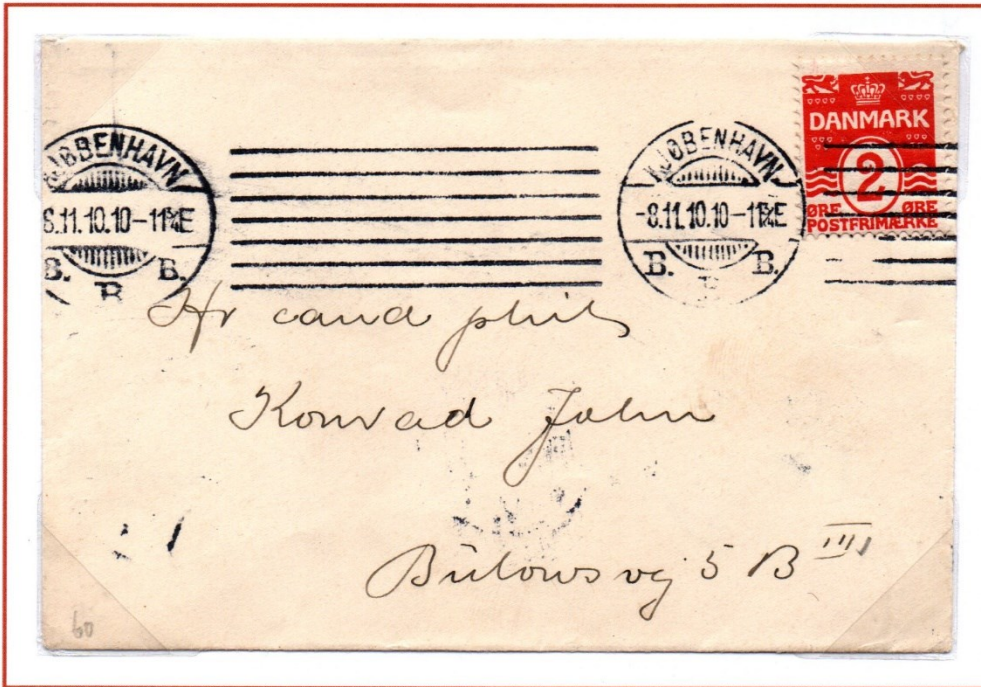 KJØBENHAVN
8.11.10.10-11¾E
B. B. B
KJØBENHAVN
-8.11.10.10-11¾E
B. B.
DANMARK
2
ØRE ØRE
POSTFRIMÆRKE
Hr cand phil
Konrad Jahn
Bülowsvej 5 B III
60